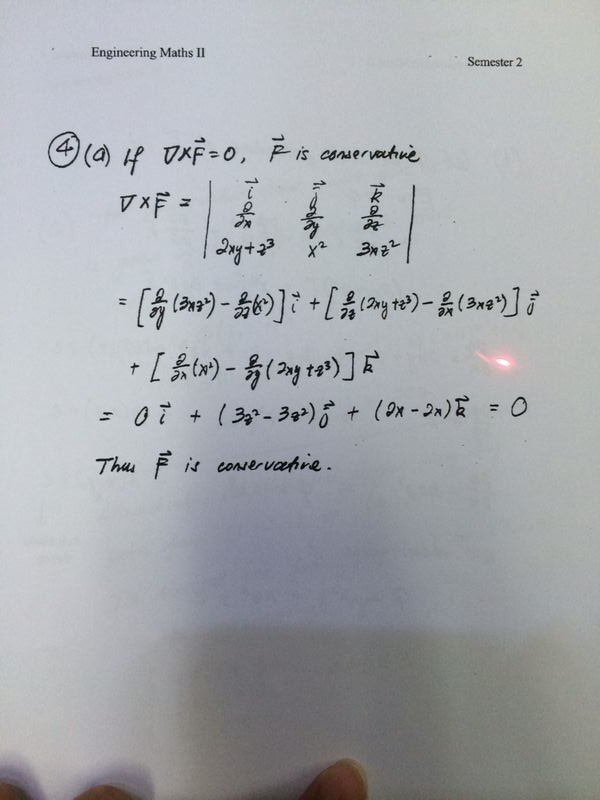 Engineering Maths II
Semester 2
④ (a) If ∇×F⃗ = 0, F⃗ is conservative
∇×F⃗ = | i⃗ j⃗ k⃗ |
| ∂/∂x ∂/∂y ∂/∂z |
| 2xy+z³ x² 3xz² |
= [∂/∂y (3xz²) − ∂/∂z (x²)] i⃗ + [∂/∂z (2xy+z³) − ∂/∂x (3xz²)] j⃗
+ [∂/∂x (x²) − ∂/∂y (2xy+z³)] k⃗
= 0 i⃗ + (3z²−3z²) j⃗ + (2x−2x) k⃗ = 0
Thus F⃗ is conservative.